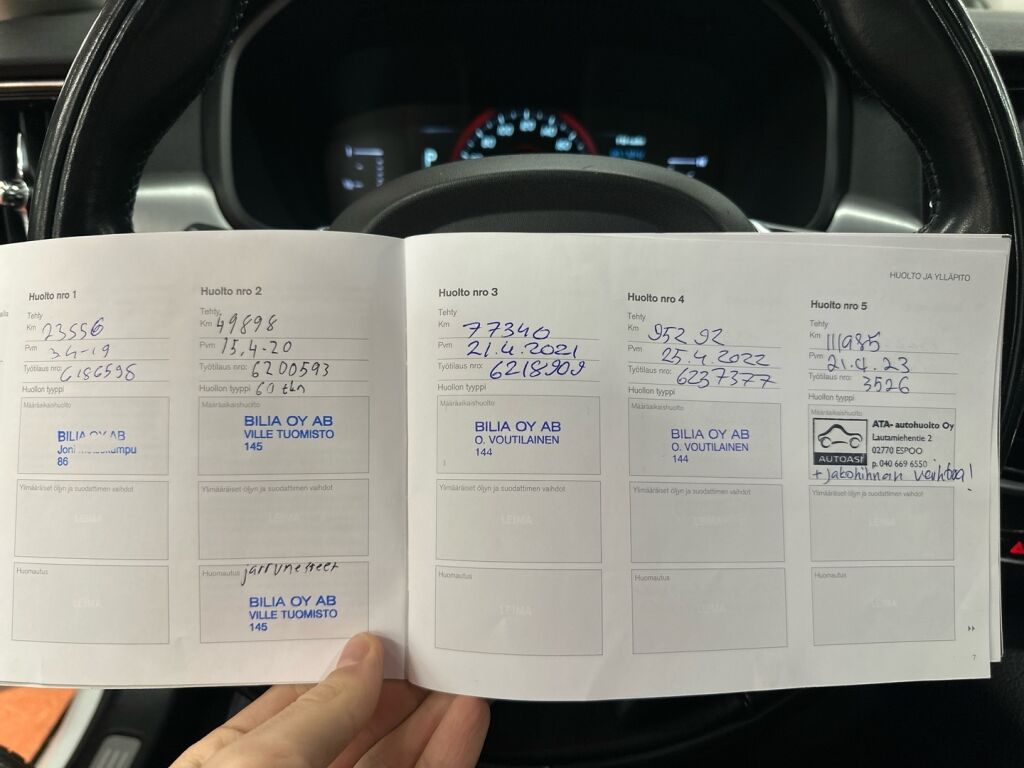 HUOLTO JA YLLÄPITO
Huolto nro 1
Tehty
Km 23556
Pvm 3.4-19
Työtilaus nro: 6186598
Huollon tyyppi
Määräaikaishuolto
BILIA OY AB
Joni
86
Ylimääräiset öljyn ja suodattimen vaihdot
LEIMA
Huomautus
LEIMA
Huolto nro 2
Tehty
Km 49898
Pvm 15.4-20
Työtilaus nro: 6200593
Huollon tyyppi 60 tkm
Määräaikaishuolto
BILIA OY AB
VILLE TUOMISTO
145
Ylimääräiset öljyn ja suodattimen vaihdot
LEIMA
Huomautus jarrunesteet
BILIA OY AB
VILLE TUOMISTO
145
Huolto nro 3
Tehty
Km 77340
Pvm 21.4.2021
Työtilaus nro: 6218909
Huollon tyyppi
Määräaikaishuolto
BILIA OY AB
O. VOUTILAINEN
144
Ylimääräiset öljyn ja suodattimen vaihdot
LEIMA
Huomautus
LEIMA
Huolto nro 4
Tehty
Km 95292
Pvm 25.4.2022
Työtilaus nro: 6237377
Huollon tyyppi
Määräaikaishuolto
BILIA OY AB
O. VOUTILAINEN
144
Ylimääräiset öljyn ja suodattimen vaihdot
LEIMA
Huomautus
LEIMA
Huolto nro 5
Tehty
Km 111985
Pvm 21.4.23
Työtilaus nro: 3526
Huollon tyyppi
Määräaikaishuolto
AUTOASI
ATA- autohuolto Oy
Lautamiehentie 2
02770 ESPOO
p. 040 669 6550
+ jakohihnan vaihtoa!
Ylimääräiset öljyn ja suodattimen vaihdot
LEIMA
Huomautus
LEIMA
7